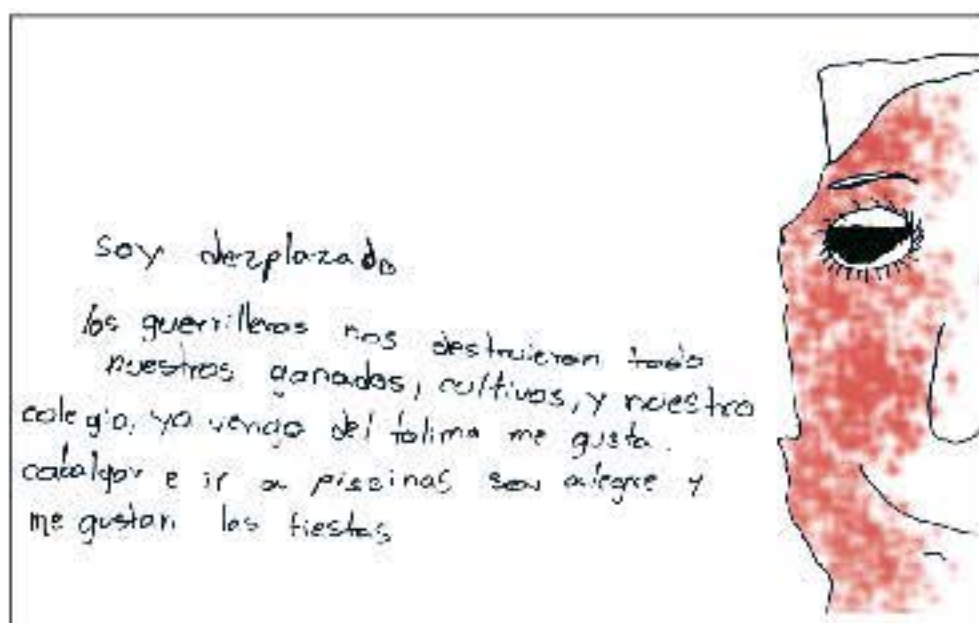 soy dezplazado
los guerrilleros nos destruieron todo
nuestros ganados, cultivos, y nuestro
colegio, yo vengo del tolima me gusta.
cabalgar e ir a piscinas soy alegre y
me gustan las fiestas